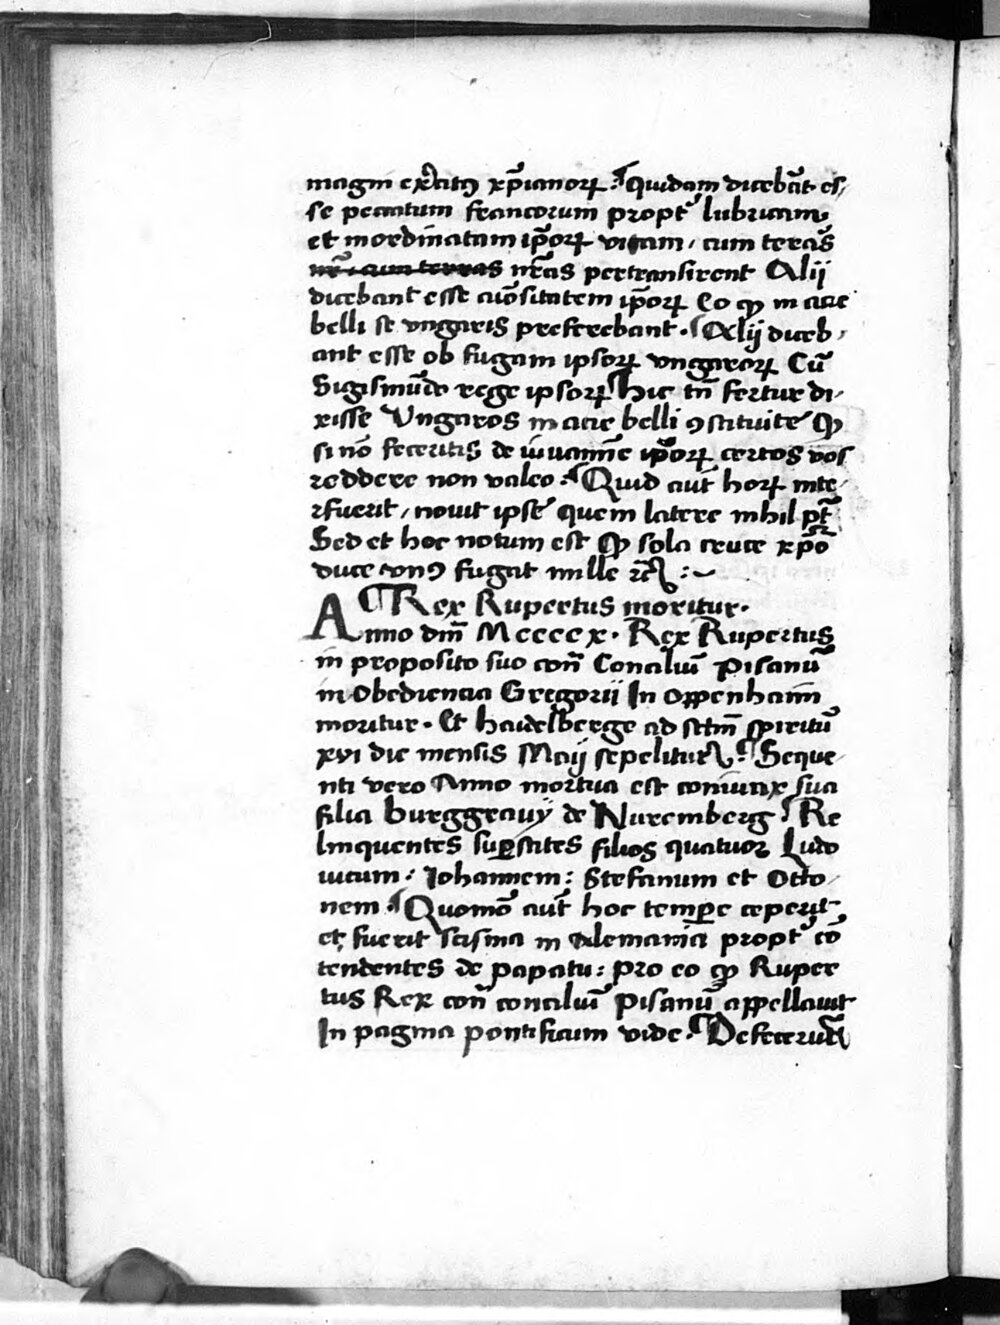 magni exẽcitꝰ xp̃ianorꝝ · Quidam dicebãt es-
se peccatum francorum propt̾ lubricam
et inordinatam ip̃orꝝ vitam, cum terãs
nr̃as cum terras nr̃as pertransirent Alij
dicebant esse ip̃orꝝ Eo ꝙ in acie
belli se vngaris preferebant · Alij diceb-
ant esse ob fugam ipsorꝝ vngarorꝝ Cũ
Sigismũdo rege ipsorꝝ Hic tñ fertur di-
xisse Vngaros in acie belli ꝯstituite Qꝫ
si nõ feceritis de iuuamine ip̃orꝝ certos vos
reddere non valeo · Quid aut̃ horꝝ inte-
rfuerit, nouit ipse quem latere nihil pt̃
Sed et hoc notum est ꝙ sola cruce xp̃o
duce vnꝰ fugat mille ⁊c̃ :~
Rex Rupertus moritur ·
Anno dñi Mccccx · Rex Rupertus
in proposito suo con̄ Conciliũ Pisanũ
in Obediencia Gregorij In Oppenhaim
moritur · Et haidelberge ad sctm̃ spiritũ
xvi die mensis Maij sepelitur · Seque-
nti vero Anno mortua est coniunx sua
filia burggrauij de Nuremberg · Re
linquentes suꝑstites filios quatuor Ludo
uicum : Iohannem : Stefanum et Otto-
nem · Quomõ aut̃ hoc tempꝰe ceperit
et fuerit scisma in Alemania propt̾ cõ
tendentes de papatu : pro eo ꝙ Ruper
tus Rex con̄ conciliũ Pisanũ appellauit
In pagina pontificum vide · Defecerũt